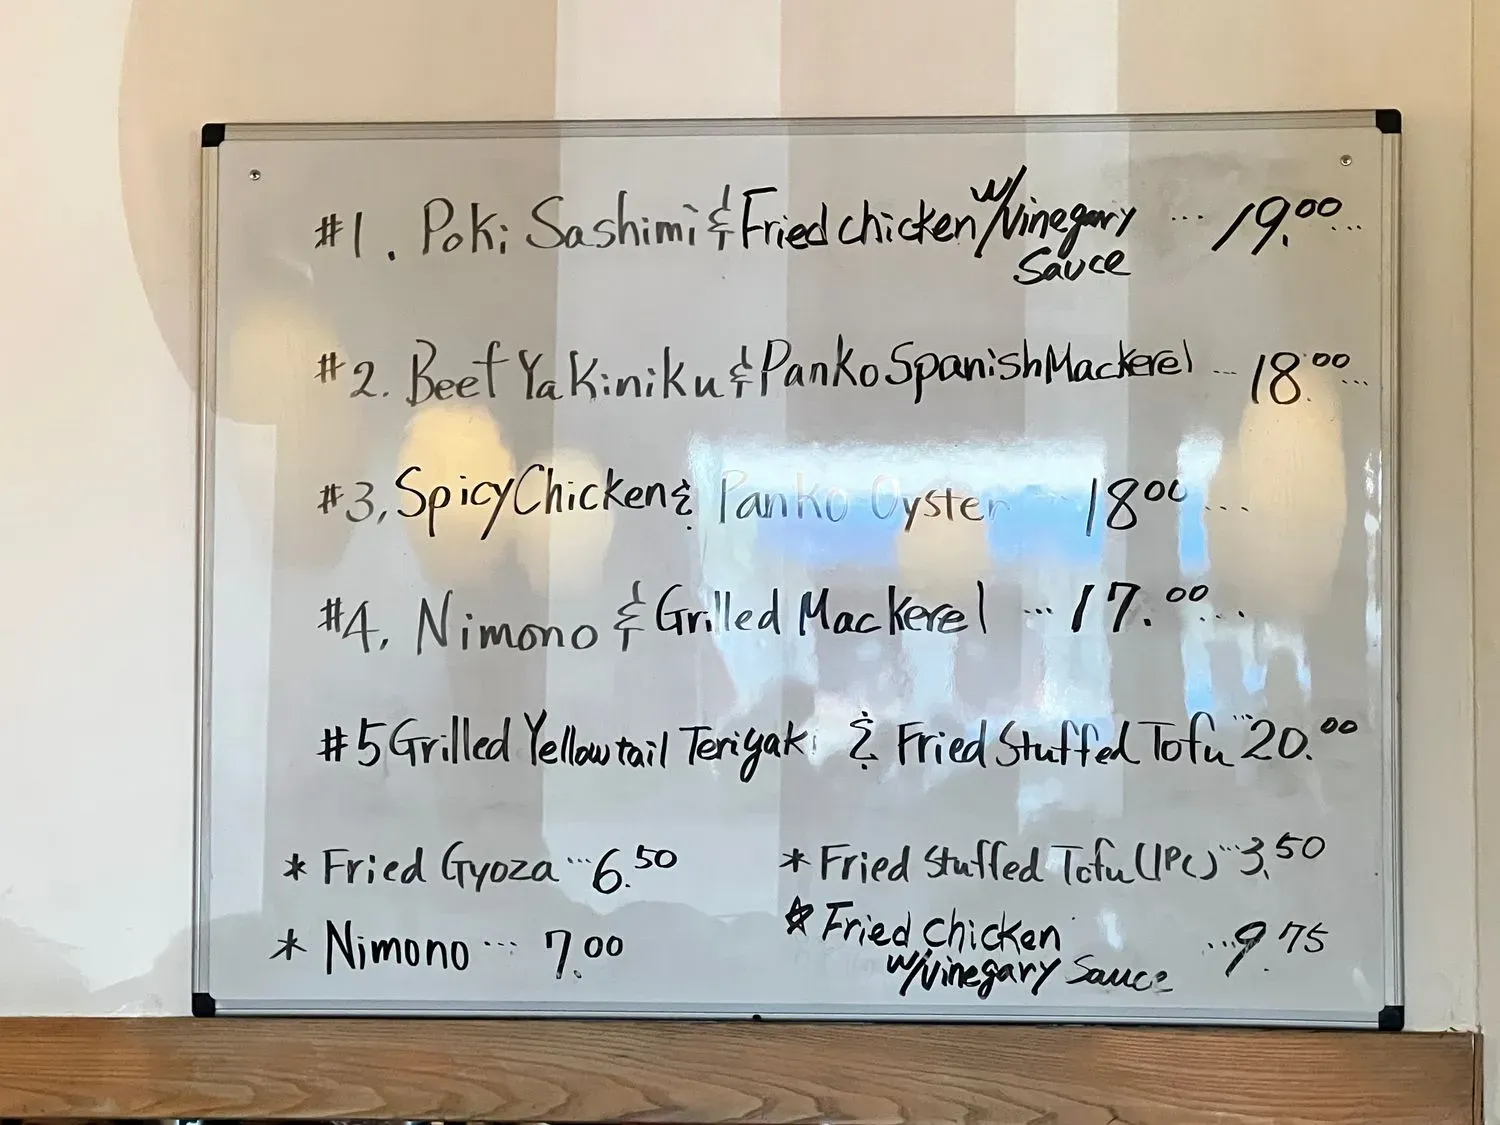 #1. Poki Sashimi & Fried chicken w/vinegary ... 19.00...
Sauce
#2. Beef Yakiniku & Panko Spanish Mackerel ... 18.00...
#3, Spicy Chicken & Panko Oyster 18.00...
#4, Nimono & Grilled Mackerel ... 17.00...
#5 Grilled Yellowtail Teriyaki & Fried Stuffed Tofu ... 20.00
* Fried Gyoza ... 6.50
* Fried Stuffed Tofu (1PC) ... 3.50
* Nimono ... 7.00
* Fried chicken ... 9.75
w/vinegary Sauce